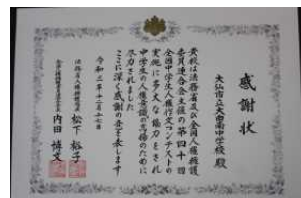 感謝状
大仙市立大曲南中学校 殿
貴校は法務省及び全国人権擁護
委員連合会主催の第四十回
全国中学生人権作文コンテストの
実施に多大な協力をされ
中学生の人権意識の高揚のために
尽力されました
ここに深く感謝の意を表します
令和三年十二月十七日
松下 裕子
内田 博文